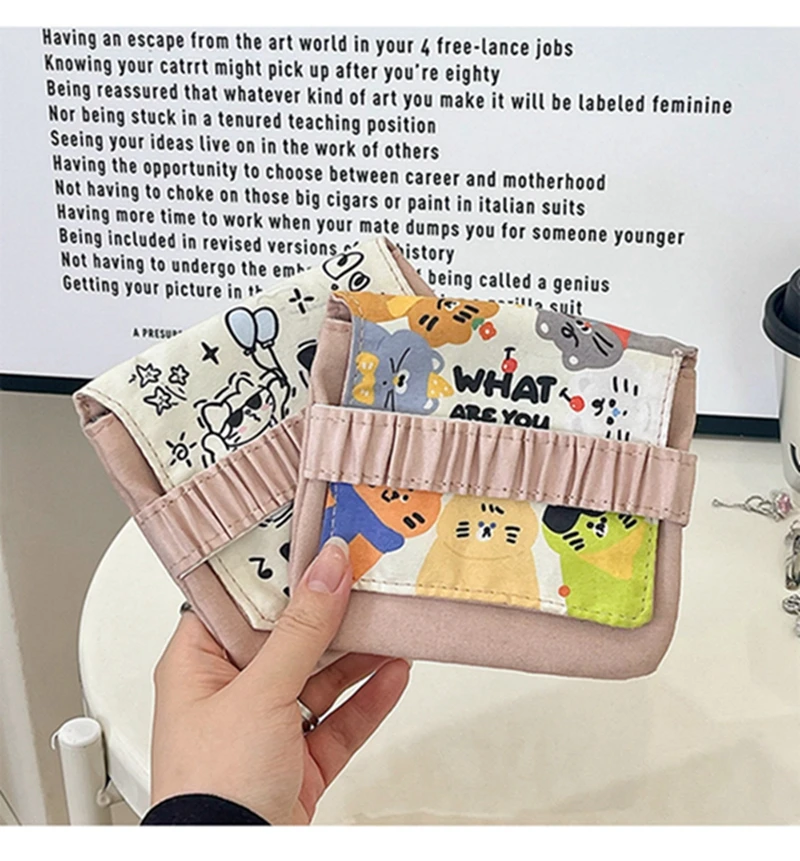 Having an escape from the art world in your 4 free-lance jobs
Knowing your catrrt might pick up after you're eighty
Being reassured that whatever kind of art you make it will be labeled feminine
Nor being stuck in a tenured teaching position
Seeing your ideas live on in the work of others
Having the opportunity to choose between career and motherhood
Not having to choke on those big cigars or paint in italian suits
Having more time to work when your mate dumps you for someone younger
Being included in revised versions history
Not having to undergo the being called a genius
Getting your picture in suit
A
WHAT
ARE YOU